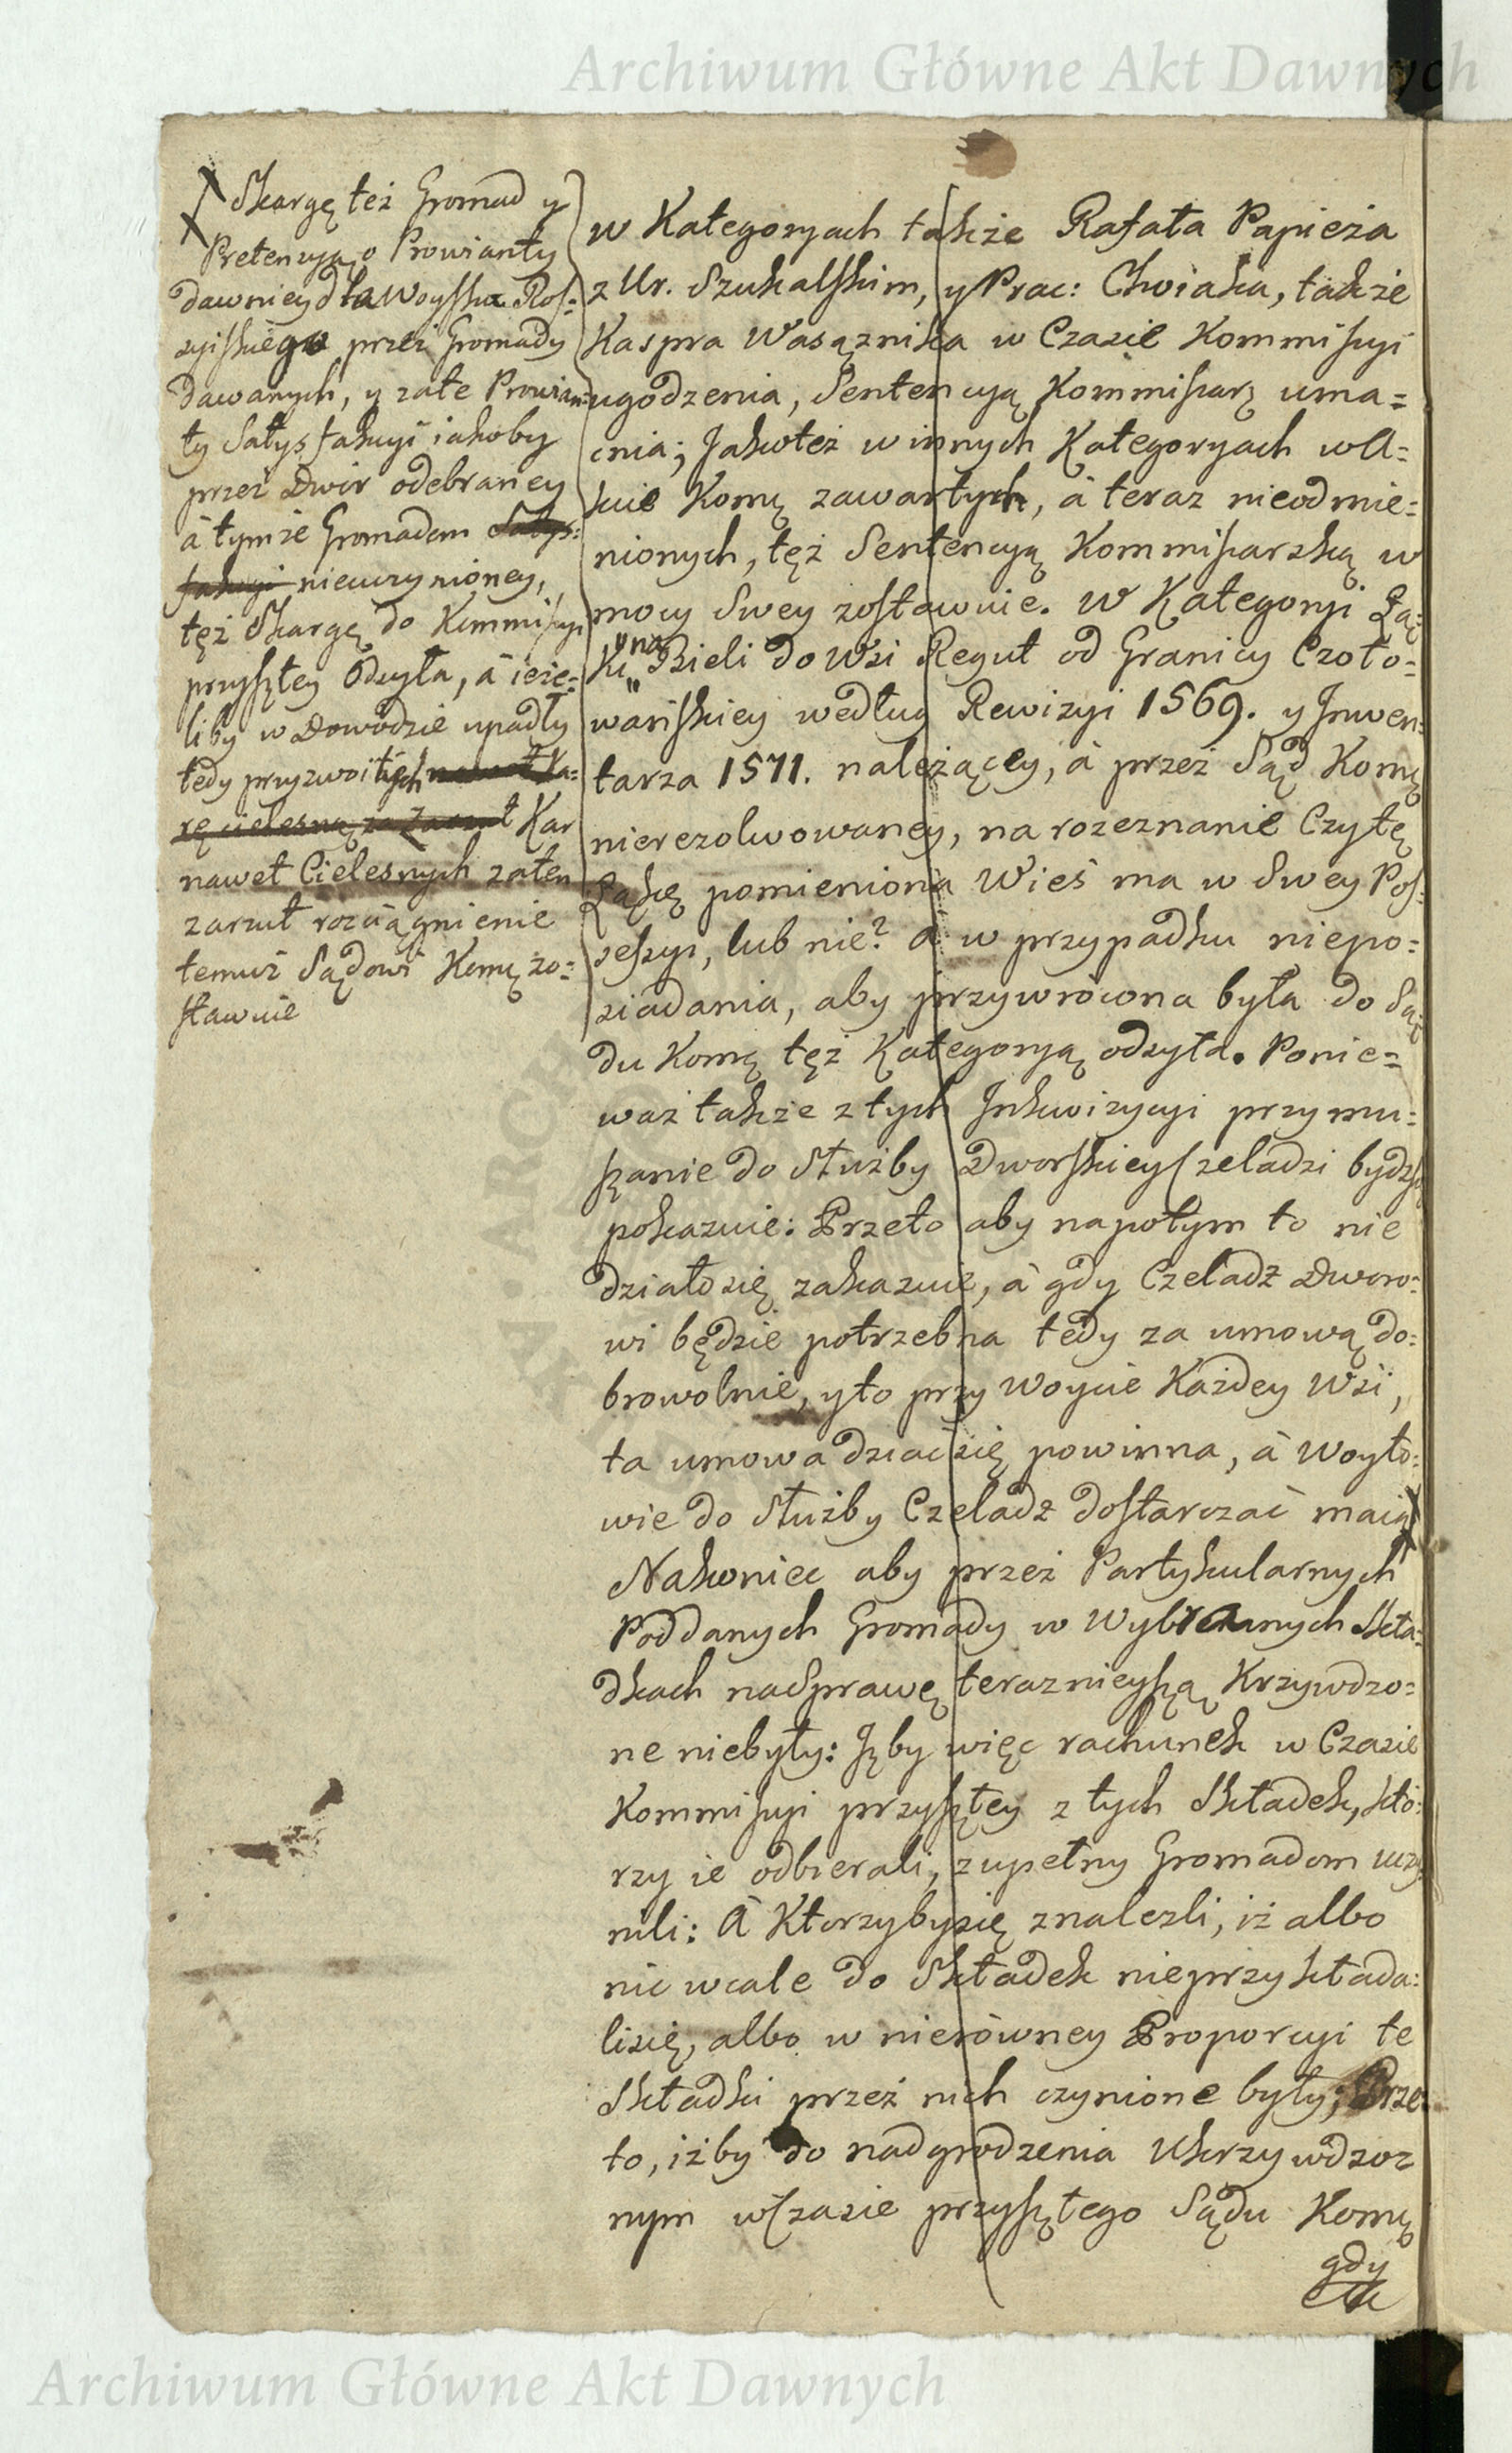 Archiwum Główne Akt Dawnych
Skargę też Gromad y
Pretensyą o Prowianty
dawniey dla Woyska Ros=
syiskiego przez Gromady
dawanych, y zate Prowian=
ty Satysfakcyi iakoby
przez Dwór odebraney
à tymże Gromadom Satys=
fakcyi nieuczynioney,
też Skargę do Kommissyi
przyszłey Odsyła, à ieże=
liby w Dowodzie upadły
tedy przyzwoitych nawet Ka=
rę cielesną za Zarzut Kar
nawet Cielesnych zaten
zarzut rozciągnienie
temuż Sądowi Komę zo=
stawuie
w Kategoryach także Rafała Papieża
z Ur. Szukalskim, y Prac: Chwiaka, także
Kaspra Wasąznika w Czasie Kommissyi
ugodzenia, Sentencyą Kommissarz uma=
cnia; Jakoteż w innych Kategoryach w A=
kcie Komę zawartych, à teraz nieodmie=
nionych, też Sentencyą Kommissarską w
mocy Swey zostawuie. W Kategoryi Łą=
ki „na Bieli do Wsi Reguł od Granicy Czoło=
wańskiey według Rewizyi 1569. y Jnwen=
tarza 1571. należącey, à przez Sąd Komę
nierezolwowaney, na rozeznanie Czy tę
Łąkę pomieniona Wieś ma w Swey Pos=
sessyi, lub nie? à w przypadku niepo=
siadania, aby przywrócona była do Są=
du Komę też Kategoryą odsyła. Ponie=
waż także z tych Jnkwizycyi przymu=
szanie do Służby Dworskiey Czeladzi bydź się
pokazuie: Przeto aby napotym to nie
działosię zakazuie, à gdy Czeladź Dworo=
wi będzie potrzebna tedy za umową do=
browolnie, y to przy Woycie Każdey Wsi,
ta umowa dziać się powinna, à Woyto=
wie do Służby Czeladź dostarczać maią
Nakoniec aby przez Partykularnych
Poddanych Gromady w Wybranych Skła=
dkach na Sprawę teraznieyszą Krzywdzo=
ne niebyły: Jżby więc rachunek w Czasie
Kommissyi przyszłey z tych Składek, któ=
rzy ie odbierali, zupełny Gromadom uczy
nili: à Którzyby się znalezli, iż albo
nic wcale do Składek nieprzykłada=
lisię, albo w nierówney Proporcyi te
Składki przez nich czynione były; Prze=
to, iżby do nadgrodzenia Ukrzywdzo=
nym w Czasie przyszłego Sądu Komę
gdy
Archiwum Główne Akt Dawnych